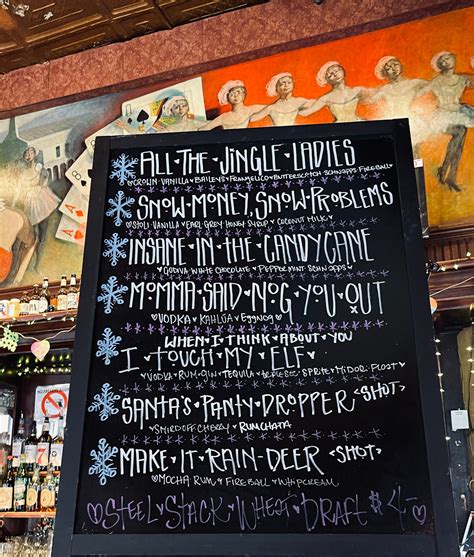 ALL THE JINGLE LADIES
CROWN VANILLA BAILEYS FRANGELICO BUTTERSCOTCH SCHNAPPS FIREBALL
SNOW MONEY, SNOW PROBLEMS
STOLI VANILLA EARL GREY HONEY SYRUP COCONUT MILK
INSANE IN THE CANDYCANE
GODIVA WHITE CHOCOLATE PEPPERMINT SCHNAPPS
MOMMA SAID NOG YOU OUT
VODKA KAHLÚA EGGNOG
WHEN I THINK ABOUT YOU
I TOUCH MY ELF
VODKA RUM GIN TEQUILA SPRITE MIDORI FLOAT
SANTA'S PANTY DROPPER <SHOT>
SMIRNOFF CHERRY RUMCHATA
MAKE IT RAIN-DEER <SHOT>
MOCHA RUM FIREBALL WHIPCREAM
STEEL STACK WHEAT DRAFT $4-